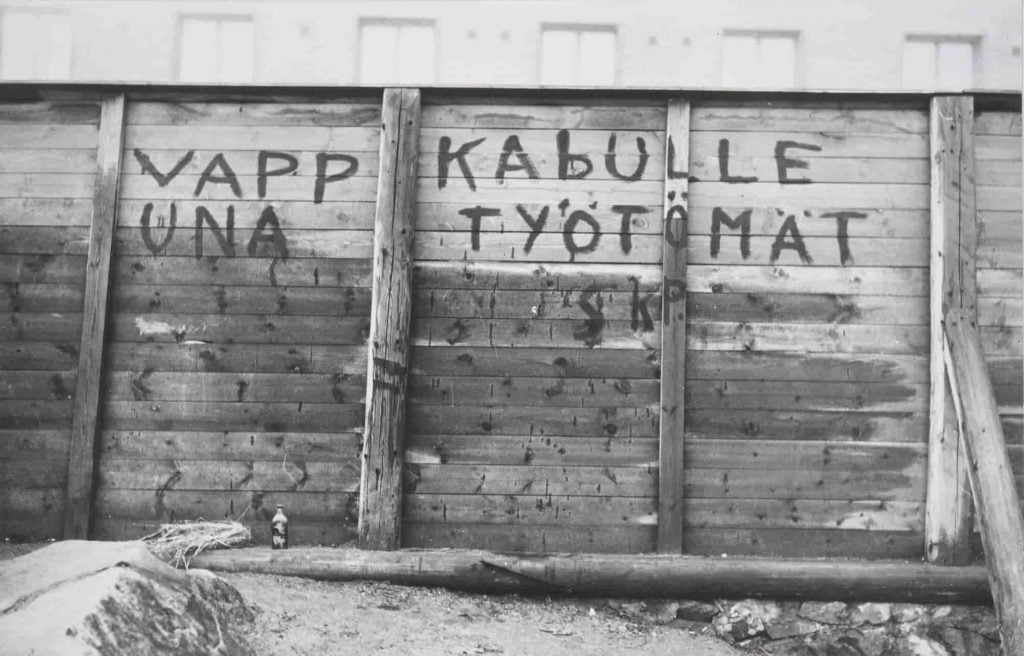 VAPP KADULLE
UNA TYÖTÖMÄT
SKP